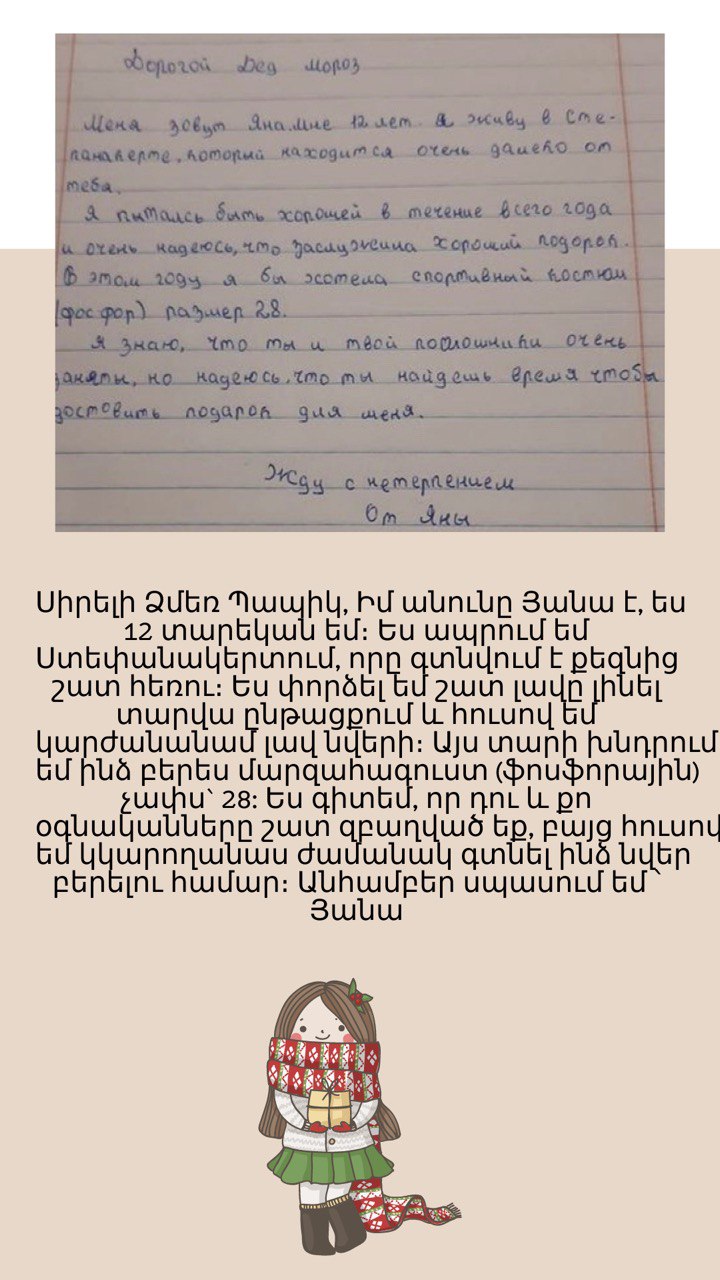 Дорогой Дед мороз
Меня зовут Яна.Мне 12 лет. Я живу в Сте-
панакерте, который находится очень далеко от
тебя.
Я пыталсь быть хорошей в течение всего года
и очень надеюсь, что заслужила хороший подорок.
В этом году я бы хотела спортивный костюм
(фосфор) размер 28.
Я знаю, что ты и твой помошники очень
заняты, но надеюсь, что ты найдешь время чтобы
достовить подарок для меня.
Жду с нетерпением
От Яны
Սիրելի Ձմեռ Պապիկ, Իմ անունը Յանա է, ես
12 տարեկան եմ։ Ես ապրում եմ
Ստեփանակերտում, որը գտնվում է քեզնից
շատ հեռու։ Ես փորձել եմ շատ լավը լինել
տարվա ընթացքում և հուսով եմ
կարժանանամ լավ նվերի։ Այս տարի խնդրում
եմ ինձ բերես մարզահագուստ (ֆոսֆորային)
չափս՝ 28: Ես գիտեմ, որ դու և քո
օգնականները շատ զբաղված եք, բայց հուսով
եմ կկարողանաս ժամանակ գտնել ինձ նվեր
բերելու համար։ Անհամբեր սպասում եմ ՝
Յանա